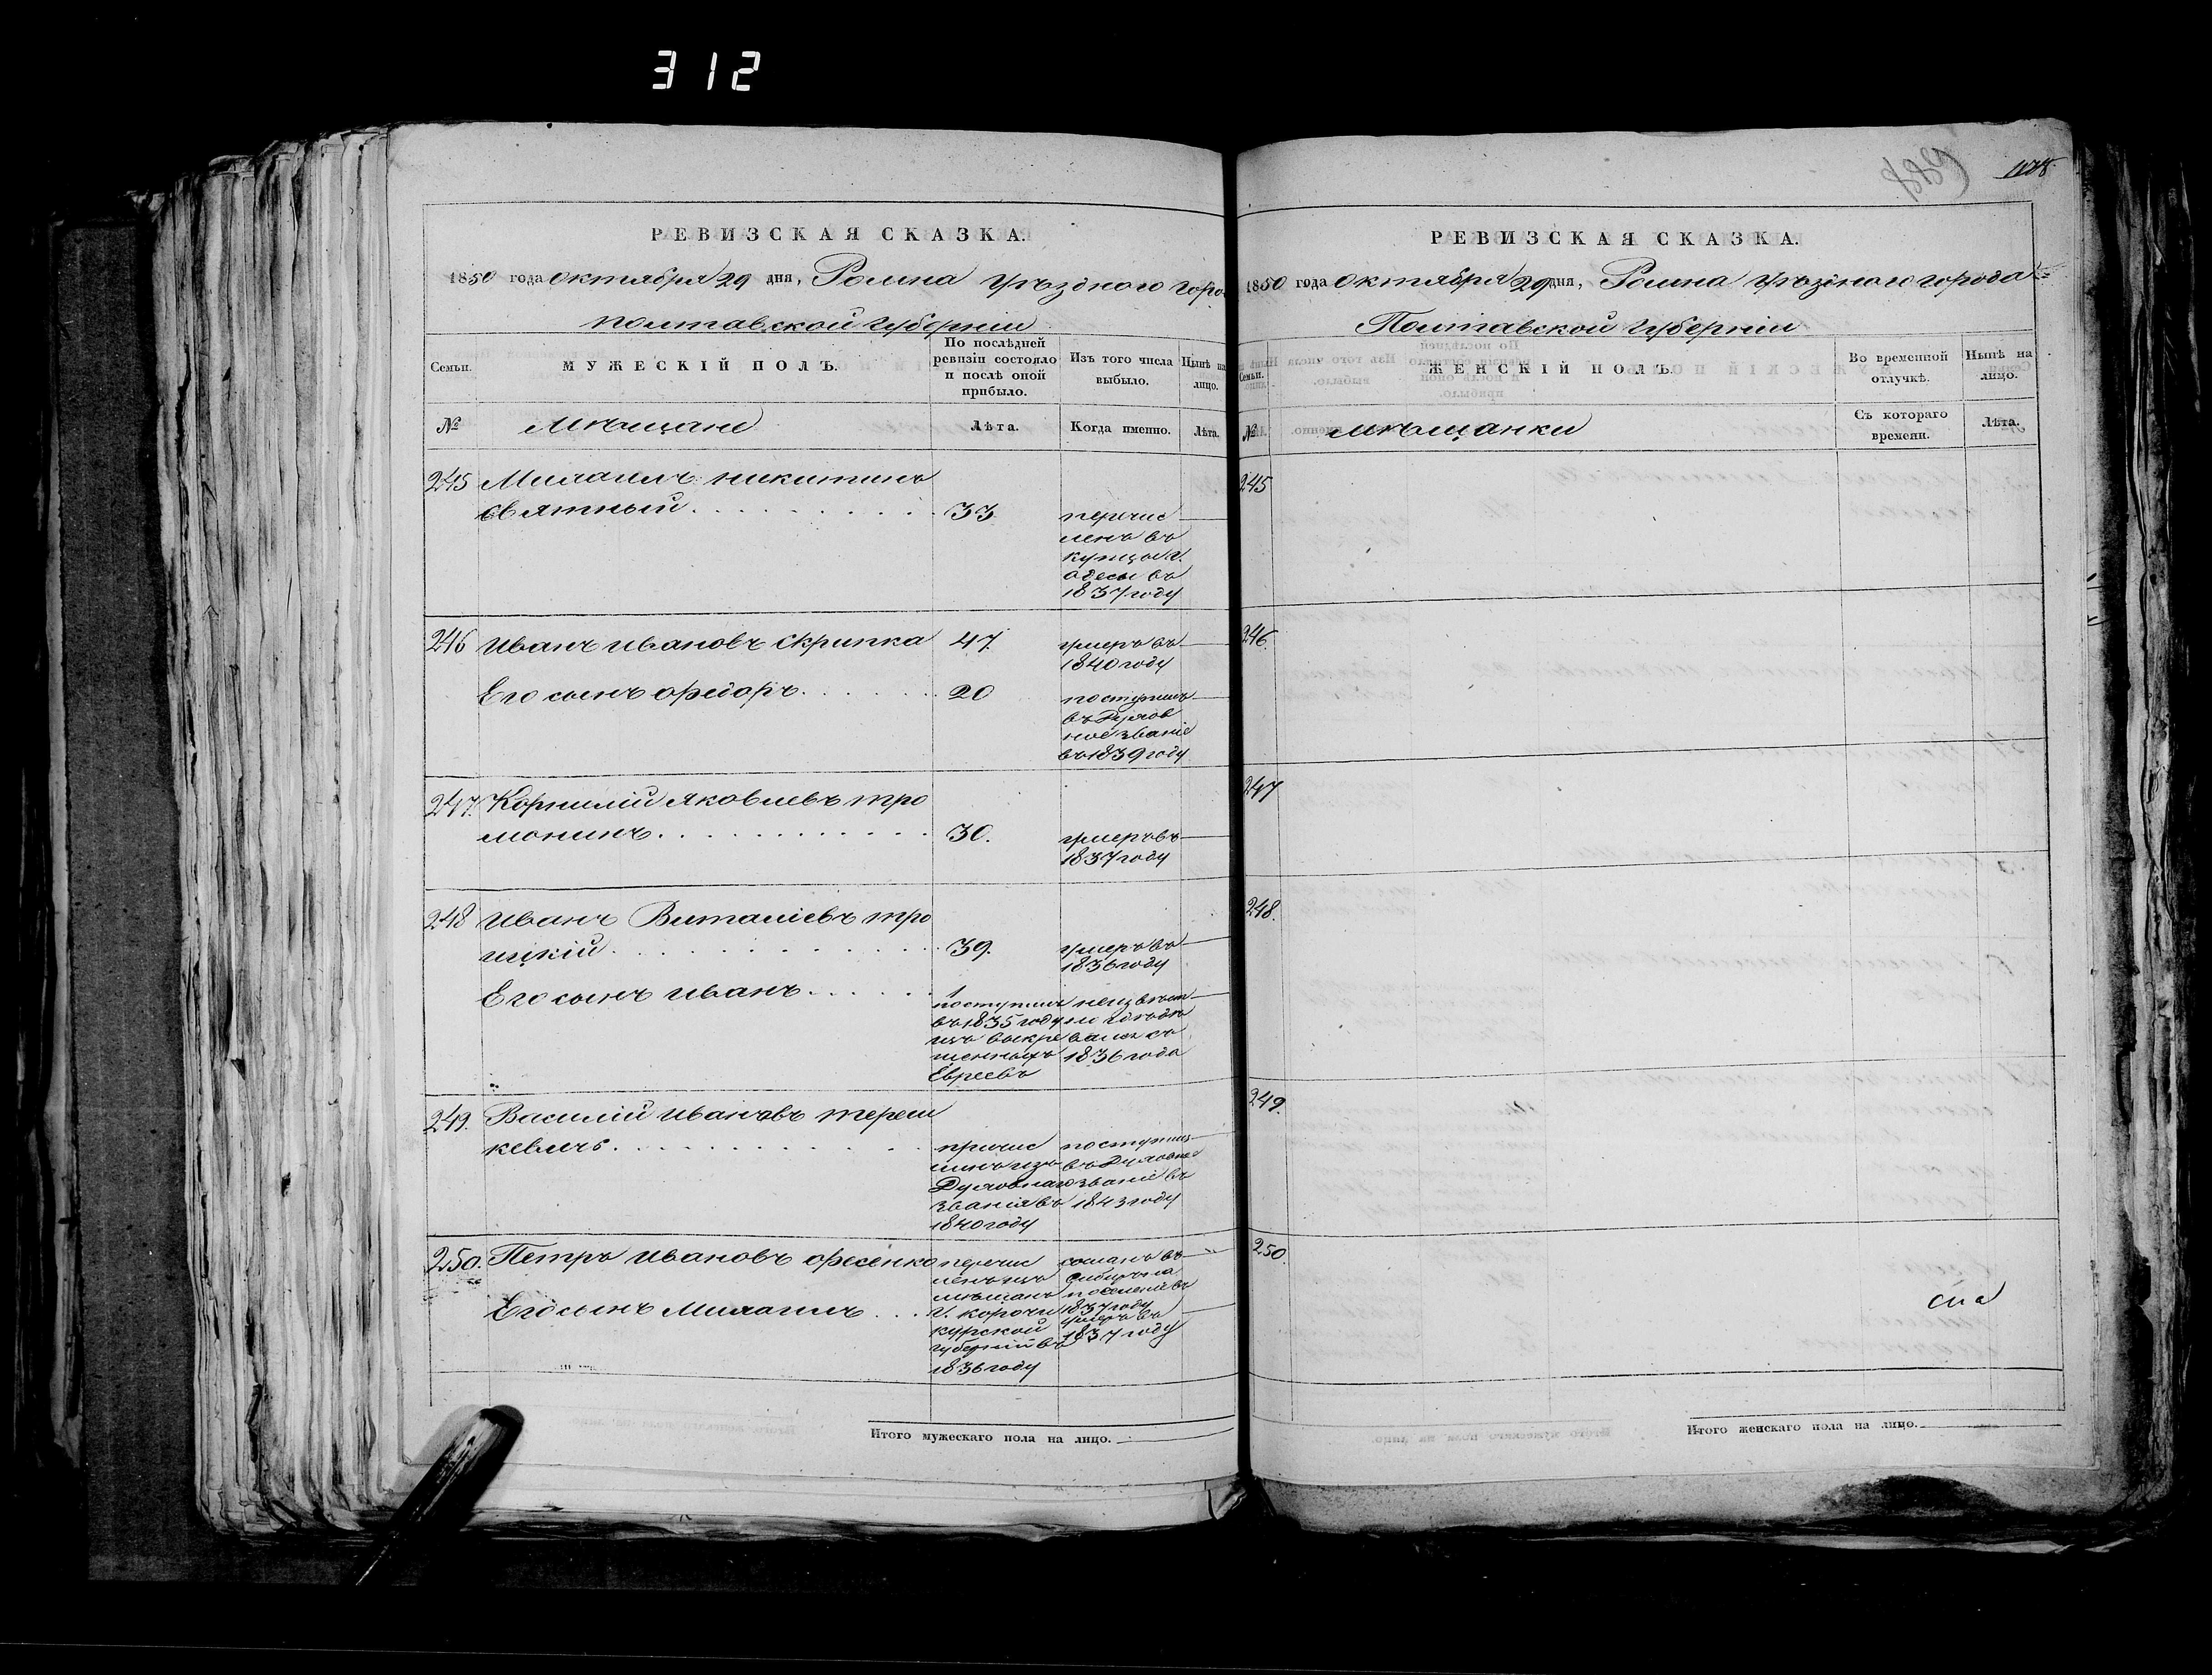 312
РЕВИЗСКАЯ СКАЗКА.
1850 года октября 29 дня, Ромна уѣзднаго горо
полтавской губерніи
Семьи.
МУЖЕСКІЙ ПОЛЪ.
По послѣдней ревизіи состояло и послѣ оной прибыло.
Изъ того числа выбыло.
Нынѣ на лицо.
№
мѣщане
Лѣта.
Когда именно.
Лѣта.
245 Михаилъ никитинъ
святный 33
перечис
ленъ въ
купцы г.
одесы въ
1837 году
246 Иванъ ивановъ скрипка 47.
умеръ въ
1840 году
Его сынъ ѳедоръ 20
поступилъ
въ Духов
ное званіе
въ 1839 году
247. Корнилій яковлевъ тро
монинъ 30.
умеръ въ
1837 году
248 Иванъ Виталіевъ тро
ицкій 39.
умеръ въ
1836 году
Его сынъ иванъ 1
поступилъ
въ 1835 году
изъ выкре
щенныхъ
Евреевъ
неизвѣст
но гдѣ дѣ
вался съ
1836 года
249. Василій ивановъ тереш
кевичъ
причис
ленъ изъ
Духовнаго
званія въ
1840 году
поступилъ
въ Духовное
званіе въ
1843 году
250. Петръ ивановъ ѳесенко
Его сынъ Михаилъ
перечис
ленъ изъ
мѣщанъ
г. корочи
курской
губерніи въ
1836 году
сосланъ въ
Сибирь на
поселеніе въ
1837 году
умеръ въ
1837 году
Итого мужескаго пола на лицо.
РЕВИЗСКАЯ СКАЗКА.
1850 года октября 29 дня, Ромна уѣзднаго города
Полтавской губерніи
Семьи.
ЖЕНСКІЙ ПОЛЪ.
Во временной отлучкѣ.
Нынѣ на лицо.
№
мѣщанки
Съ котораго времени.
Лѣта.
245
246.
247
248.
249.
250.
Итого женскаго пола на лицо.